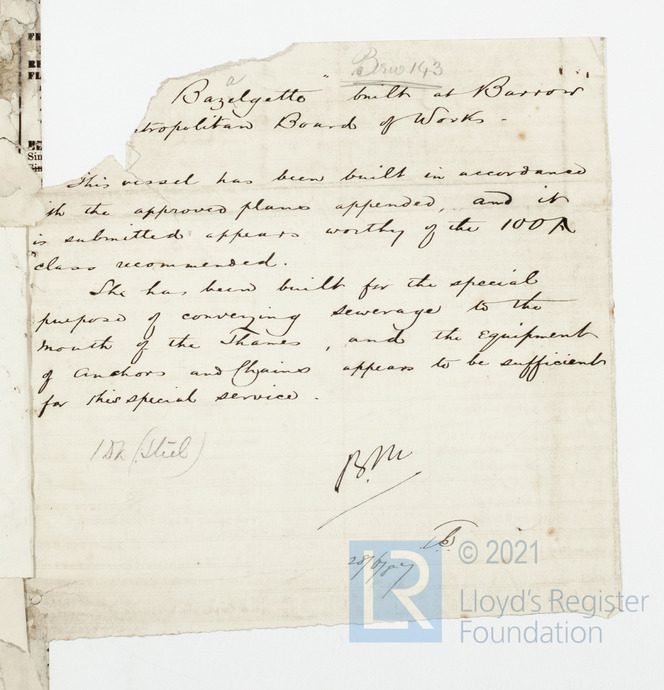 Brw 143
a
Bazelgette" built at Barrow
tropolitan Board of Works -
This vessel has been built in accordance
ith the approved plans appended, and it
is submitted appears worthy of the 100A
class recommended.
She has been built for the special
purpose of conveying sewerage to the
mouth of the Thames, and the Equipment
of Anchors and Chains appears to be sufficient
for this special service.
1 Dk (Steel)
B.M
28/6/87
LR
© 2021
Lloyd's Register
Foundation